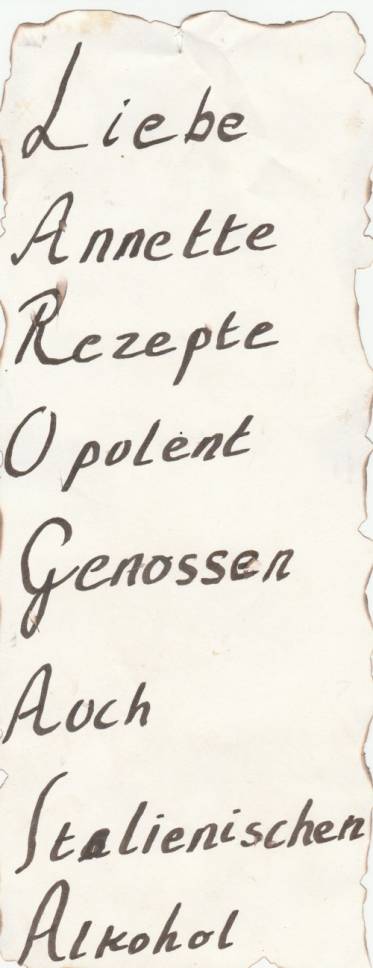 Liebe
Annette
Rezepte
Opolent
Genossen
Auch
Italienischen
Alkohol